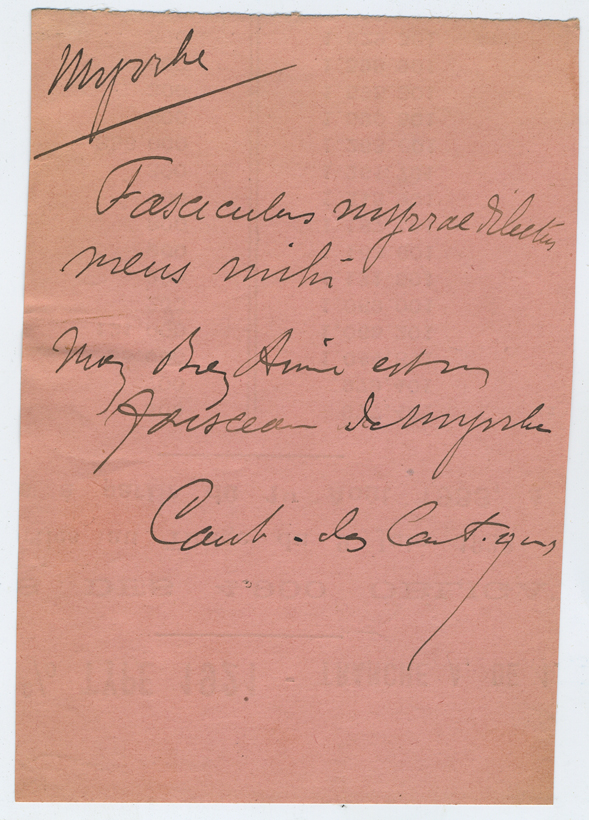 Myrrhe
Fasciculus myrrae dilectus
meus mihi
Mon Bien Aimé est un
faisceau de Myrrhe
Cant. des Cantiques